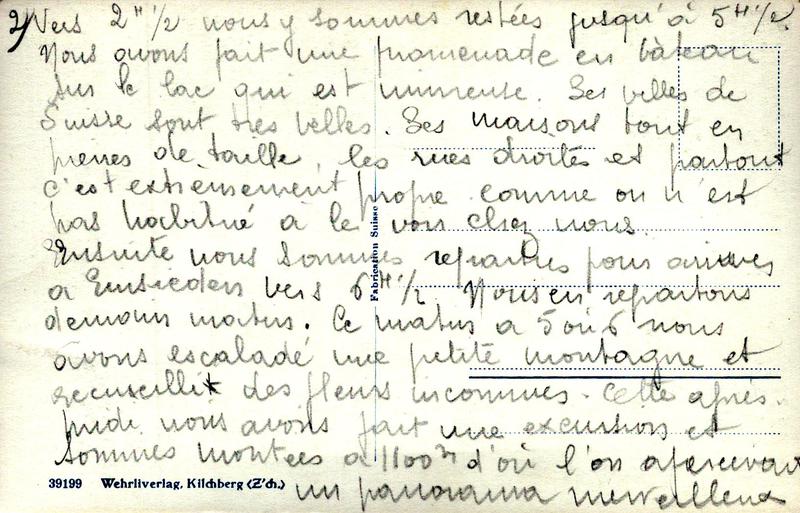 2) Vers 2 H 1/2 nous y sommes restées jusqu'à 5 H 1/2.
Nous avons fait une promenade en bâteau
sur le lac qui est immense. Les villes de
Suisse sont très belles. Les maisons tout en
pierres de taille, les rues droites et partout
c'est extrêmement propre comme on n'est
pas habitué à le voir chez nous.
Ensuite nous sommes reparties pour arrivées
a Einsiedeln vers 6 H 1/2. Nous en repartons
demain matin. Ce matin a 5 où 6 nous
avons escaladé une petite montagne et
recueilli des fleurs inconnues. Cette après-
midi nous avons fait une excursion et
sommes montées a 1100 m d'où l'on apercevait
un panorama merveilleux
Fabrication Suisse
39199 Wehrliverlag, Kilchberg (Z'ch.)